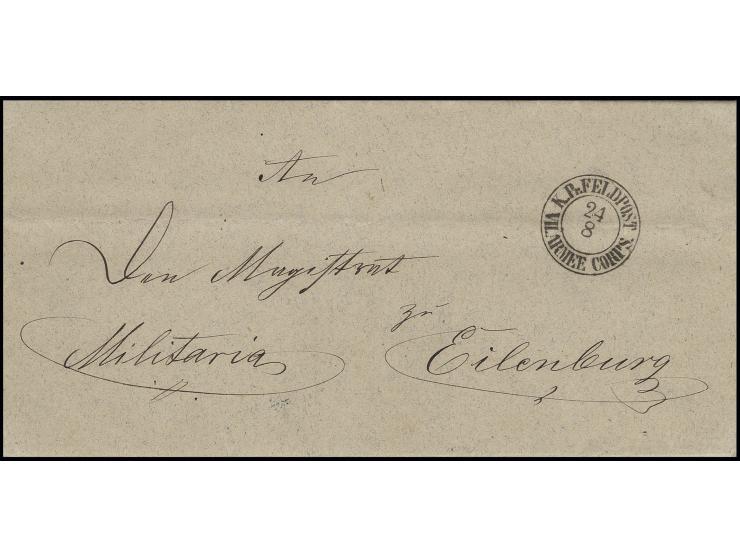 An
K. Pr. FELDPOST
24
8
VII. ARMEE CORPS.
Den Magistrat
zu
Militaria
Eilenburg